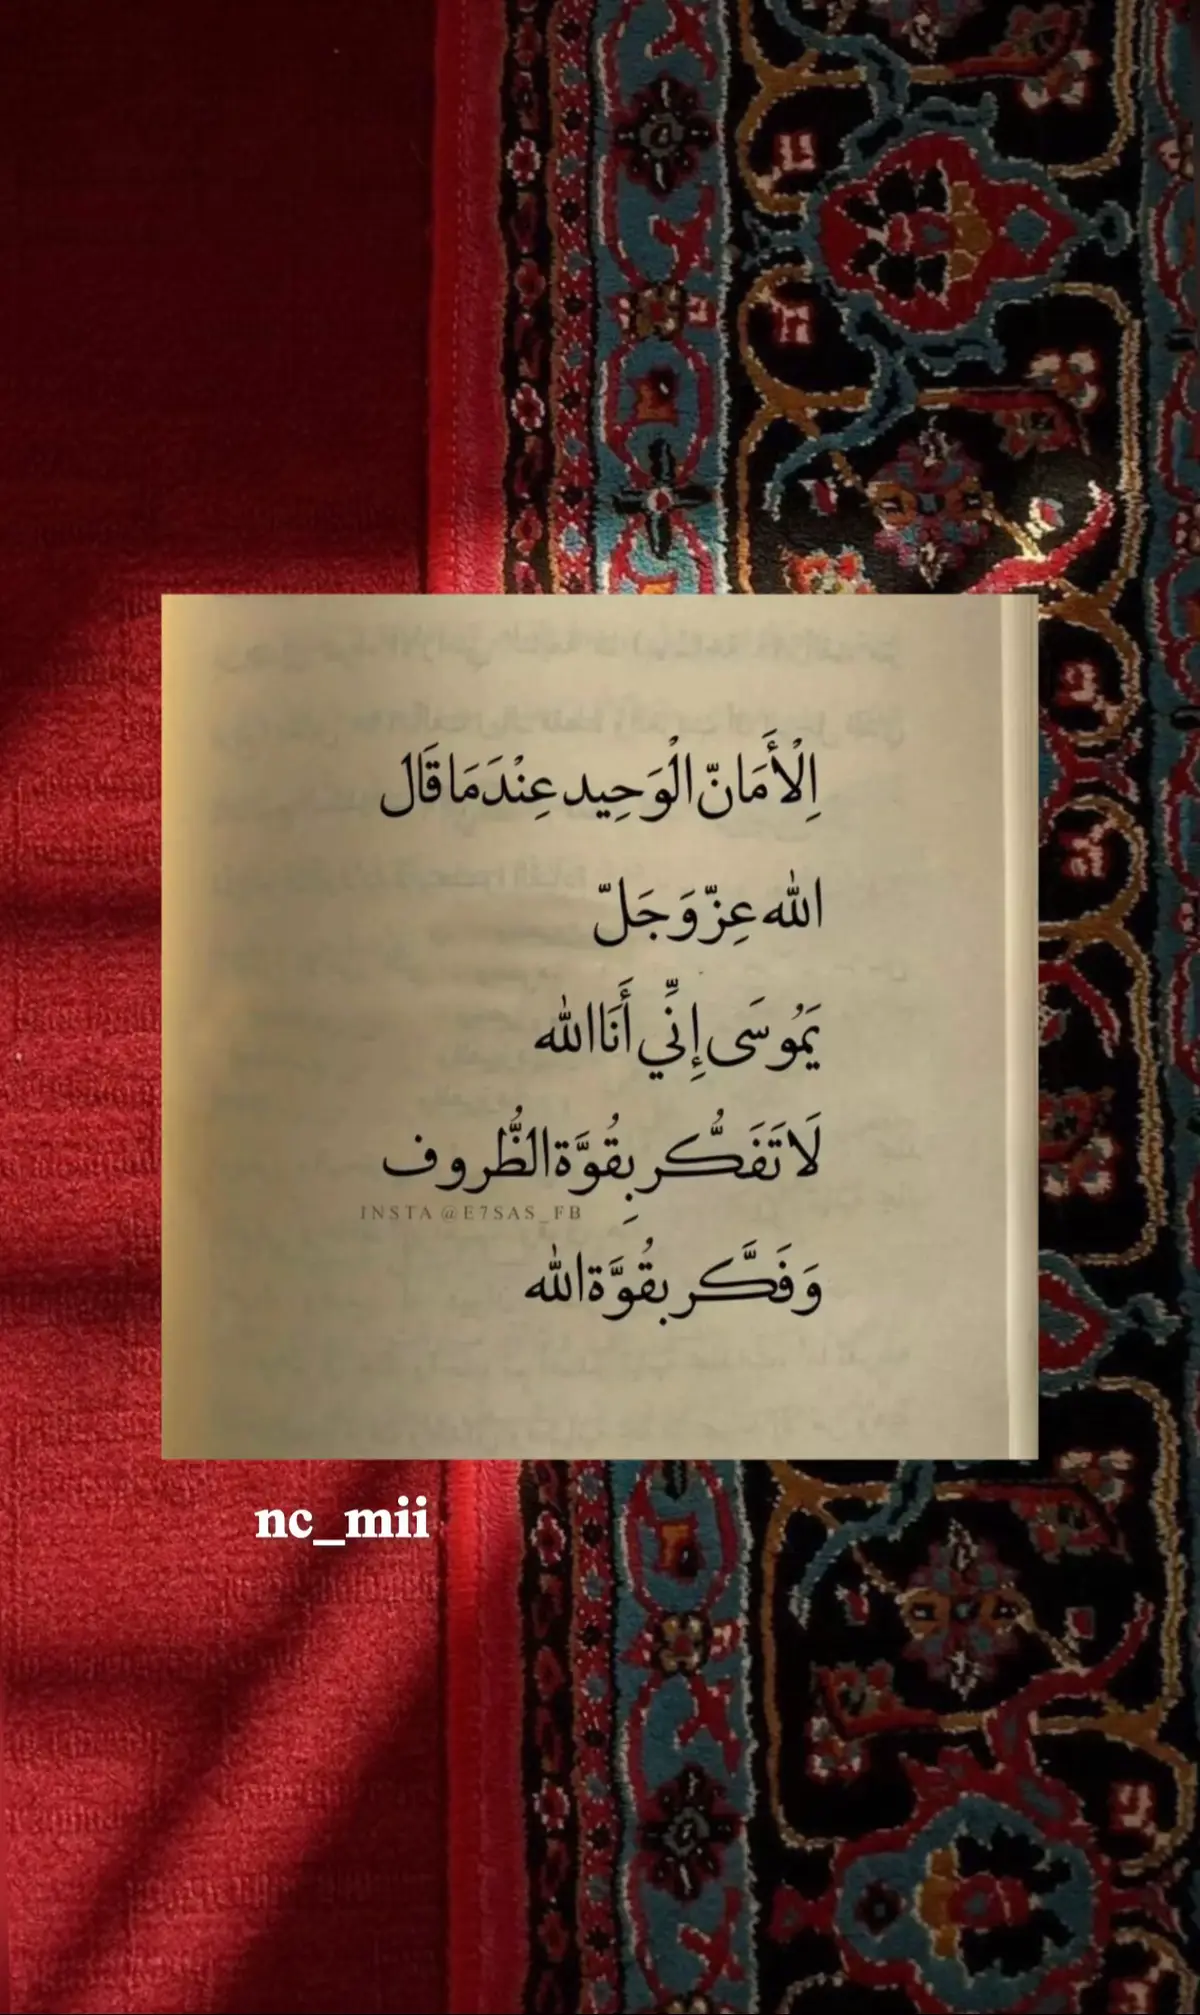 اِلْأَمَانّ الْوَحِيد عِنْدَمَا قَال
الله عِزّ وَجَلّ
يَمُوسَى إِنِّي أَنَا الله
لَا تَفَكُّر بِقُوَّة الظُّروف
INSTA @E7SAS_FB
وَفَكَّر بِقُوَّة الله
nc_mii